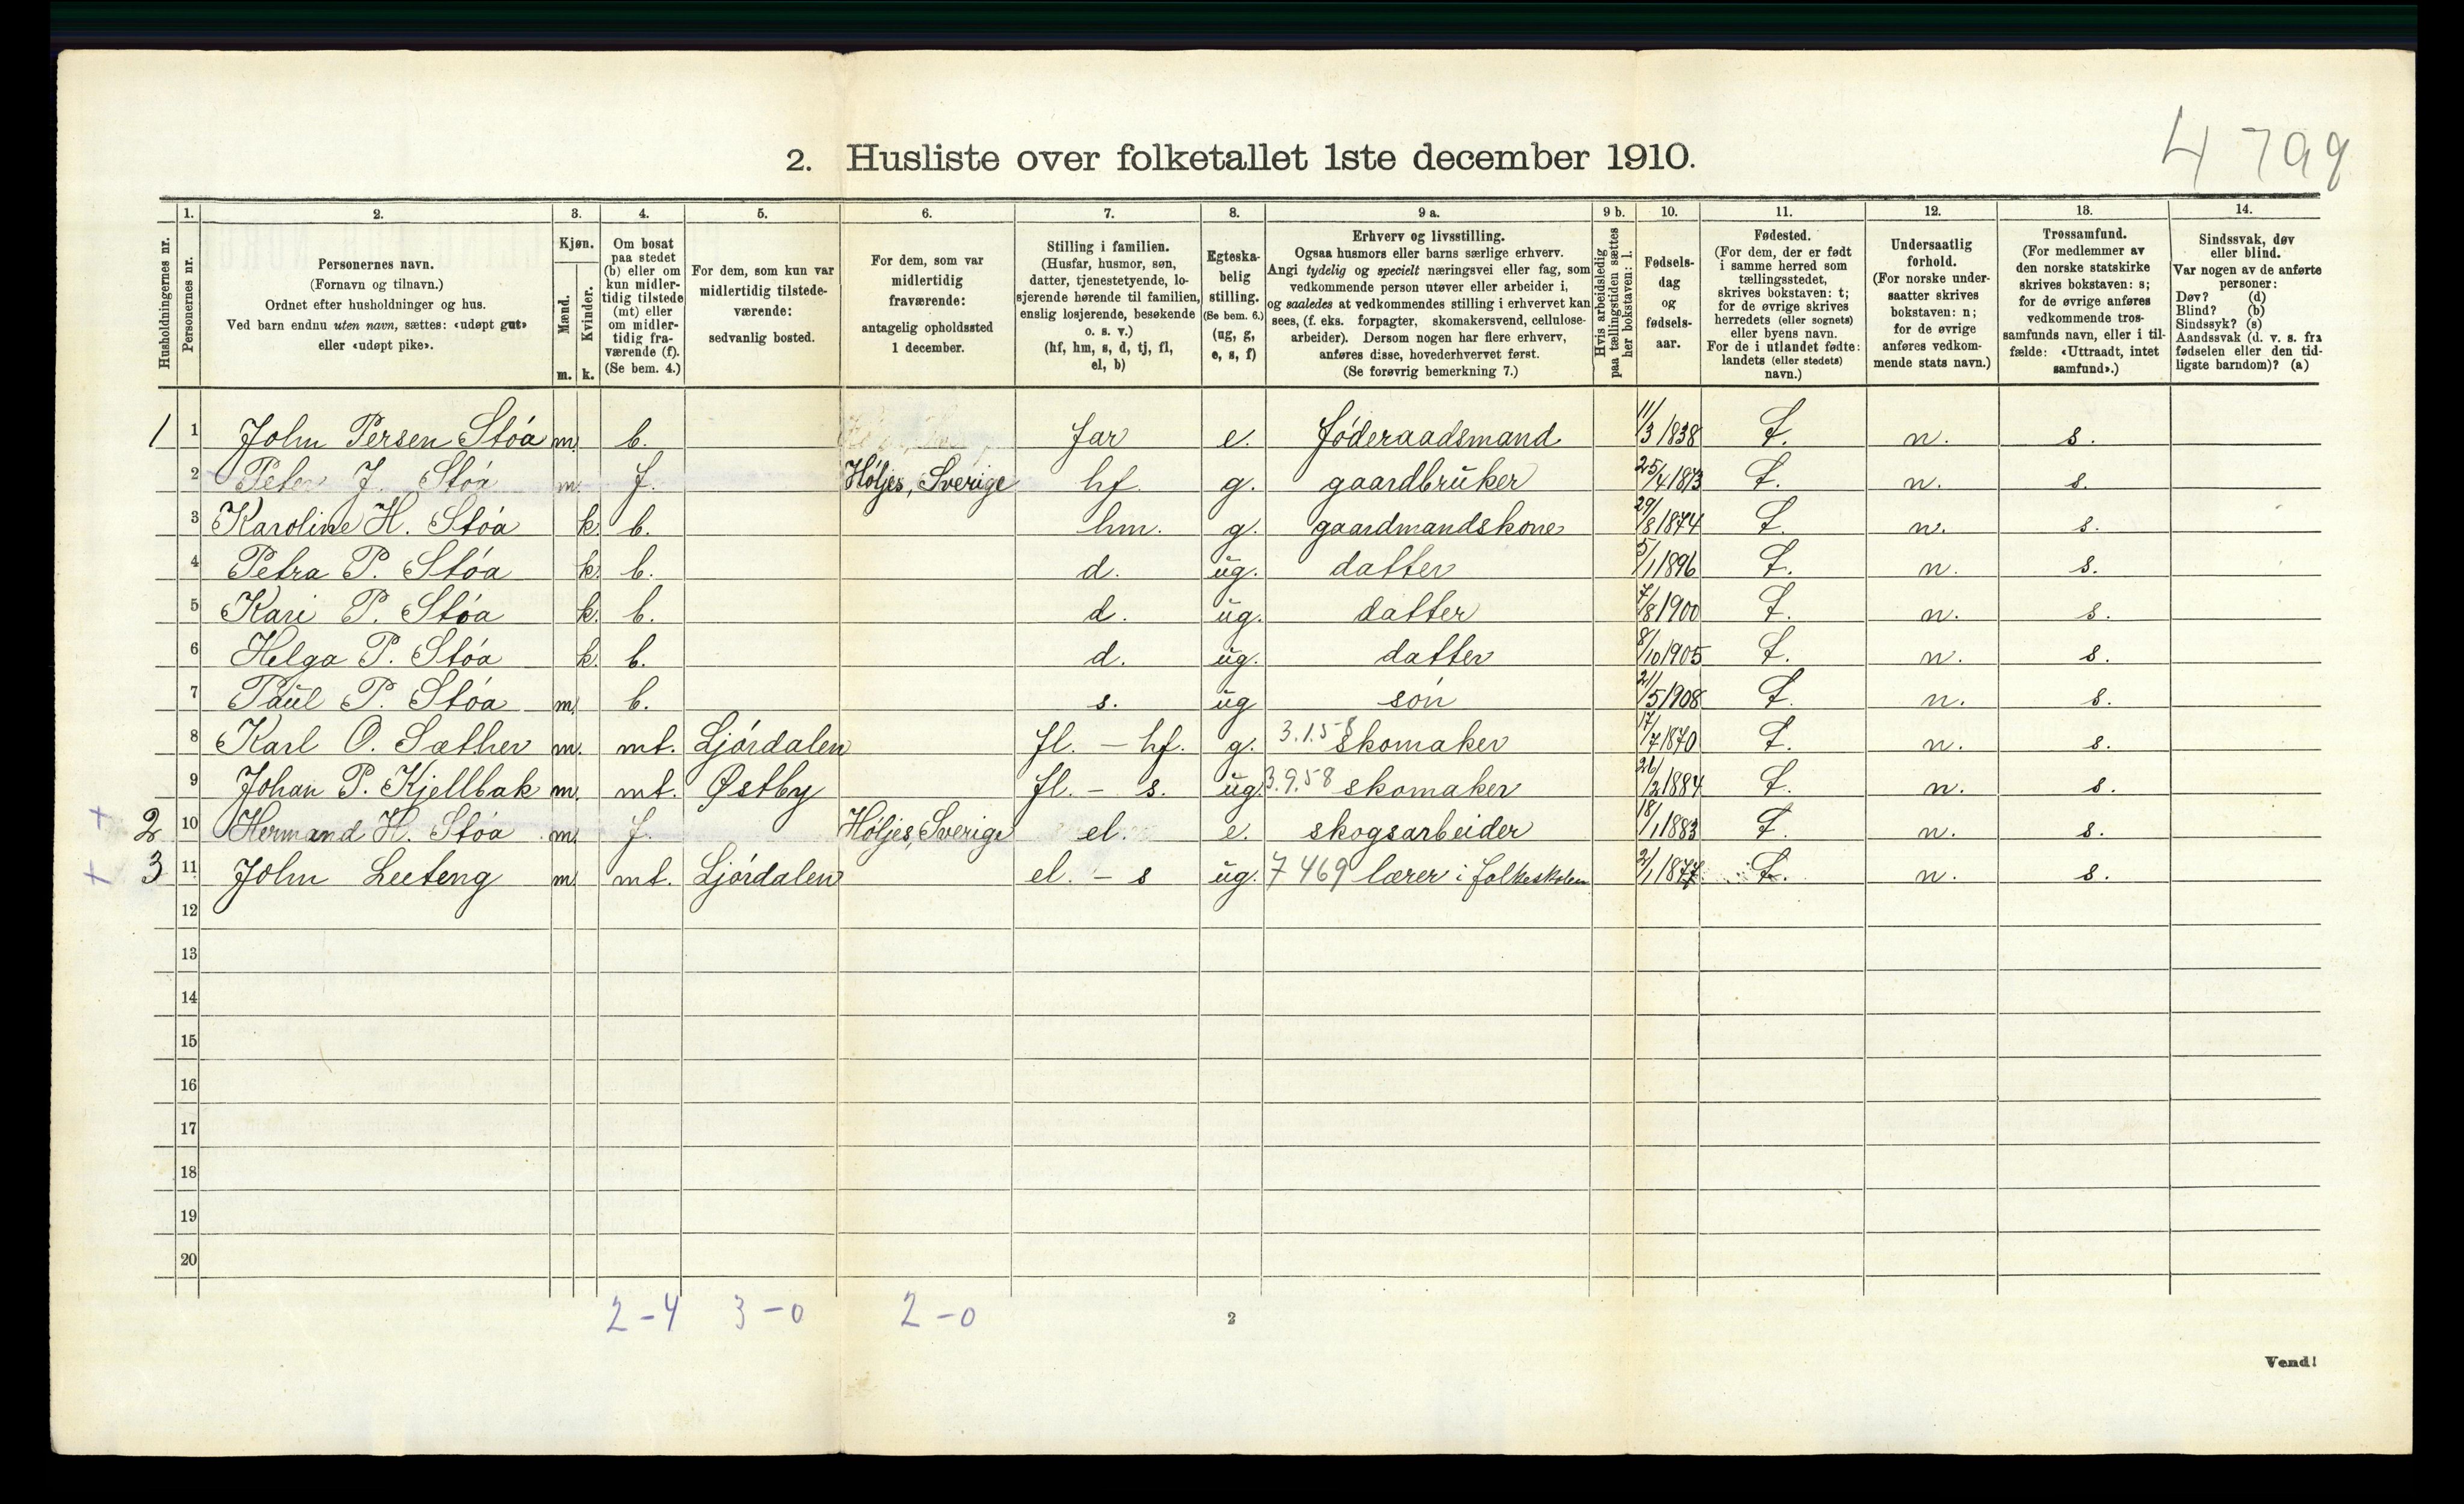 4799
2. Husliste over folketallet 1ste december 1910.
1. 2. 3. 4. 5. 6. 7. 8. 9 a. 9 b. 10. 11. 12. 13. 14.
Husholdningernes nr.
Personernes nr.
Personernes navn.
(Fornavn og tilnavn.)
Ordnet efter husholdninger og hus.
Ved barn endnu uten navn, sættes: «udøpt gut»
eller «udøpt pike».
Kjøn.
Mænd.
Kvinder.
m. k.
Om bosat
paa stedet
(b) eller om
kun midler-
tidig tilstede
(mt) eller
om midler-
tidig fra-
værende (f).
(Se bem. 4.)
For dem, som kun var
midlertidig tilstede-
værende:
sedvanlig bosted.
For dem, som var
midlertidig
fraværende:
antagelig opholdssted
1 december.
Stilling i familien.
(Husfar, husmor, søn,
datter, tjenestetyende, lo-
sjerende hørende til familien,
enslig losjerende, besøkende
o. s. v.)
(hf, hm, s, d, tj, fl,
el, b)
Egteska-
belig
stilling.
(Se bem. 6.)
(ug, g,
e, s, f)
Erhverv og livsstilling.
Ogsaa husmors eller barns særlige erhverv.
Angi tydelig og specielt næringsvei eller fag, som
vedkommende person utøver eller arbeider i,
og saaledes at vedkommendes stilling i erhvervet kan
sees, (f. eks. forpagter, skomakersvend, cellulose-
arbeider). Dersom nogen har flere erhverv,
anføres disse, hovederhvervet først.
(Se forøvrig bemerkning 7.)
Hvis arbeidsledig
paa tællingstiden sættes
her bokstaven: l.
Fødsels-
dag
og
fødsels-
aar.
Fødested.
(For dem, der er født
i samme herred som
tællingsstedet,
skrives bokstaven: t;
for de øvrige skrives
herredets (eller sognets)
eller byens navn.
For de i utlandet fødte:
landets (eller stedets)
navn.)
Undersaatlig
forhold.
(For norske under-
saatter skrives
bokstaven: n;
for de øvrige
anføres vedkom-
mende stats navn.)
Trossamfund.
(For medlemmer av
den norske statskirke
skrives bokstaven: s;
for de øvrige anføres
vedkommende tros-
samfunds navn, eller i til-
fælde: «Uttraadt, intet
samfund».)
Sindssvak, døv
eller blind.
Var nogen av de anførte
personer:
Døv? (d)
Blind? (b)
Sindssyk? (s)
Aandssvak (d. v. s. fra
fødselen eller den tid-
ligste barndom)? (a)
1 1 John Persen Stóa m. b. far e. føderaadsmand 11/3 1838 t. n. s.
2 Peter J. Stóa m. f. Höljes, Sverige hf. g. gaardbruker 25/4 1873 t. n. s.
3 Karoline H. Stóa k. b. hm. g. gaardmandskone 29/8 1874 t. n. s.
4 Petra P. Stóa k. b. d. ug. datter 5/1 1896 t. n. s.
5 Kari P. Stóa k. b. d. ug. datter 7/8 1900 t. n. s.
6 Helga P. Stóa k. b. d. ug. datter 8/10 1905 t. n. s.
7 Paul P. Stóa m. b. s. ug son 21/5 1908 t. n. s.
8 Karl O. Sæther m. mt. Ljórdalen fl. - hf. g. 3.1.58 skomaker 17/7 1870 t. n. s.
9 Johan P. Kjellbak m. mt. Østby fl. - s. ug. 3.9.58 skomaker 26/2 1884 t. n. s.
+ 2 10 Hermand H. Stóa m. f. Höljes, Sverige el. e. skogsarbeider 18/1 1883 t. n. s.
+ 3 11 John Leeteng m. mt. Ljórdalen el. - s ug. 7 469 lærer i folkeskolen 2/1 1877 t. n. s.
12
13
14
15
16
17
18
19
20
2-4 3-0 2-0
2
Vend!